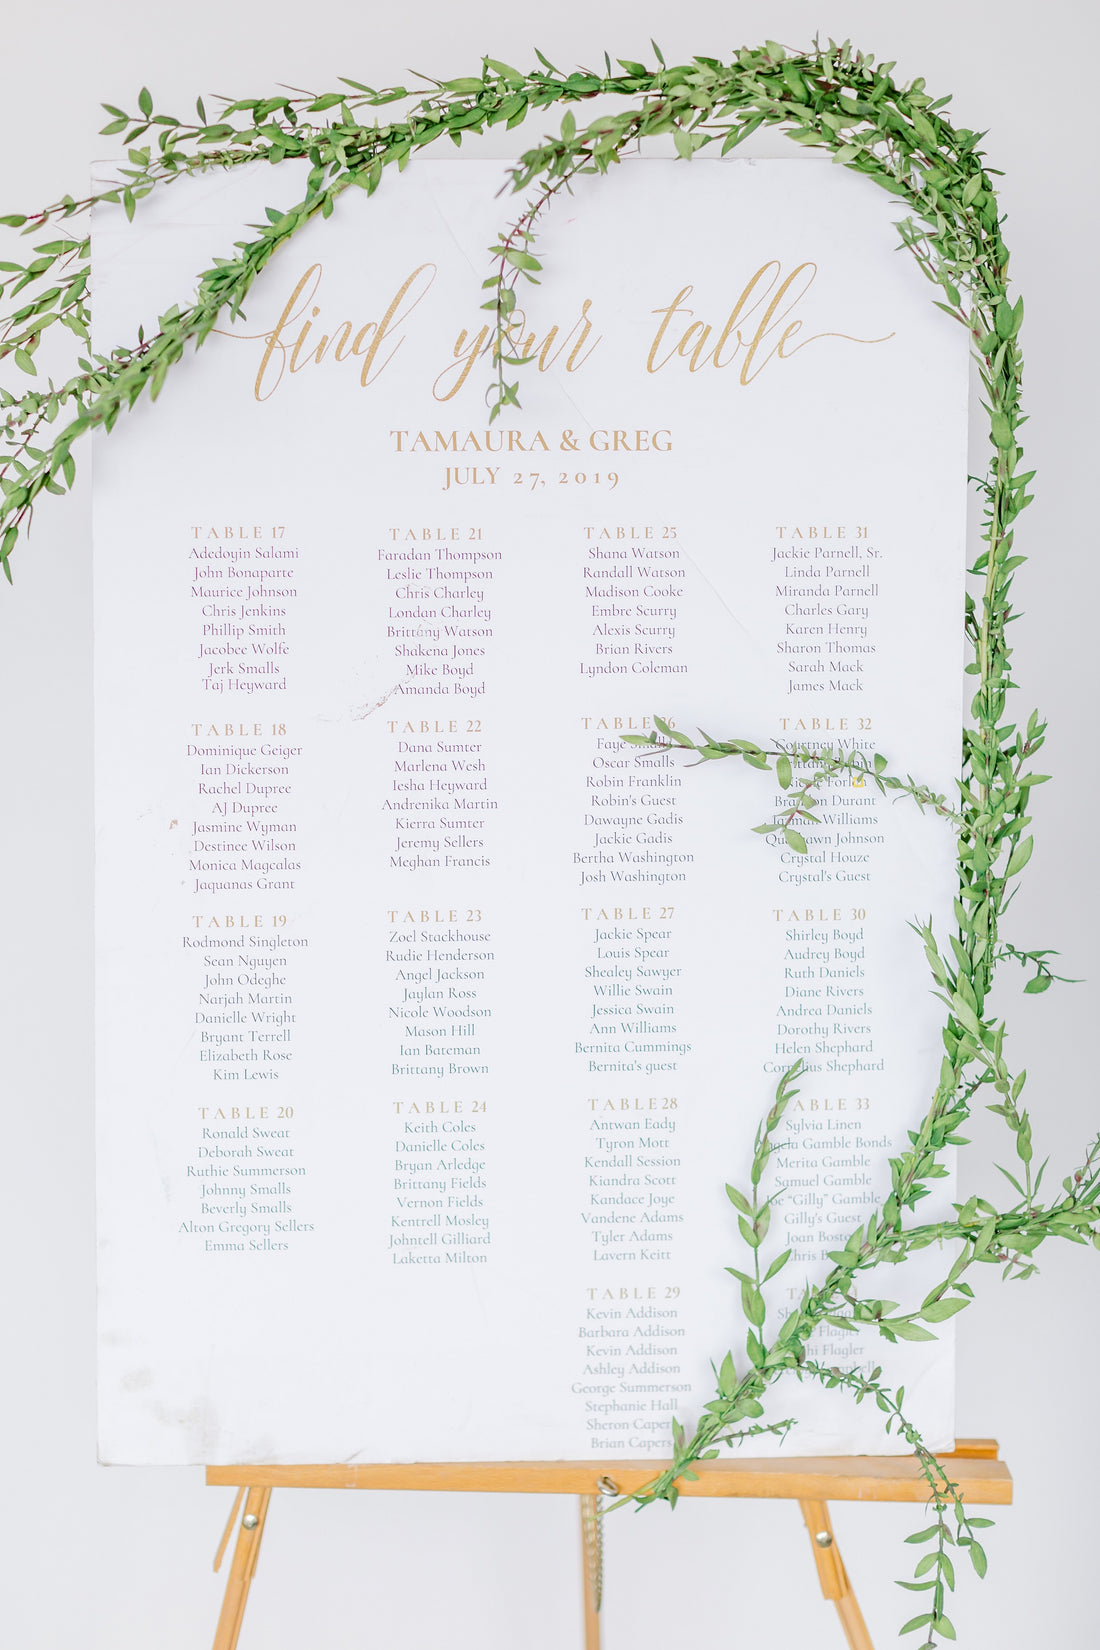 find your table
TAMAURA & GREG
JULY 27, 2019
TABLE 17
Adedoyin Salami
John Bonaparte
Maurice Johnson
Chris Jenkins
Phillip Smith
Jacobee Wolfe
Jerk Smalls
Taj Heyward
TABLE 18
Dominique Geiger
Ian Dickerson
Rachel Dupree
AJ Dupree
Jasmine Wyman
Destinee Wilson
Monica Magcalas
Jaquanas Grant
TABLE 19
Rodmond Singleton
Sean Nguyen
John Odeghe
Narjah Martin
Danielle Wright
Bryant Terrell
Elizabeth Rose
Kim Lewis
TABLE 20
Ronald Sweat
Deborah Sweat
Ruthie Summerson
Johnny Smalls
Beverly Smalls
Alton Gregory Sellers
Emma Sellers
TABLE 21
Faradan Thompson
Leslie Thompson
Chris Charley
Londan Charley
Brittany Watson
Shakena Jones
Mike Boyd
Amanda Boyd
TABLE 22
Dana Sumter
Marlena Wesh
Iesha Heyward
Andrenika Martin
Kierra Sumter
Jeremy Sellers
Meghan Francis
TABLE 23
Zoel Stackhouse
Rudie Henderson
Angel Jackson
Jaylan Ross
Nicole Woodson
Mason Hill
Ian Bateman
Brittany Brown
TABLE 24
Keith Coles
Danielle Coles
Bryan Arledge
Brittany Fields
Vernon Fields
Kentrell Mosley
Johntell Gilliard
Laketta Milton
TABLE 25
Shana Watson
Randall Watson
Madison Cooke
Embre Scurry
Alexis Scurry
Brian Rivers
Lyndon Coleman
TABLE 26
Faye Smalls
Oscar Smalls
Robin Franklin
Robin's Guest
Dawayne Gadis
Jackie Gadis
Bertha Washington
Josh Washington
TABLE 27
Jackie Spear
Louis Spear
Shealey Sawyer
Willie Swain
Jessica Swain
Ann Williams
Bernita Cummings
Bernita's guest
TABLE 28
Antwan Eady
Tyron Mott
Kendall Session
Kiandra Scott
Kandace Joye
Vandene Adams
Tyler Adams
Lavern Keitt
TABLE 29
Kevin Addison
Barbara Addison
Kevin Addison
Ashley Addison
George Summerson
Stephanie Hall
Sheron Capers
Brian Capers
TABLE 31
Jackie Parnell, Sr.
Linda Parnell
Miranda Parnell
Charles Gary
Karen Henry
Sharon Thomas
Sarah Mack
James Mack
TABLE 32
Courtney White
Brandon Durant
Williams
Johnson
Crystal Houze
Crystal's Guest
TABLE 30
Shirley Boyd
Audrey Boyd
Ruth Daniels
Diane Rivers
Andrea Daniels
Dorothy Rivers
Helen Shephard
Cornelius Shephard
TABLE 33
Sylvia Linen
Gamble Bonds
Merita Gamble
Samuel Gamble
Joe “Gilly” Gamble
Gilly's Guest
Joan
Chris
Flagler